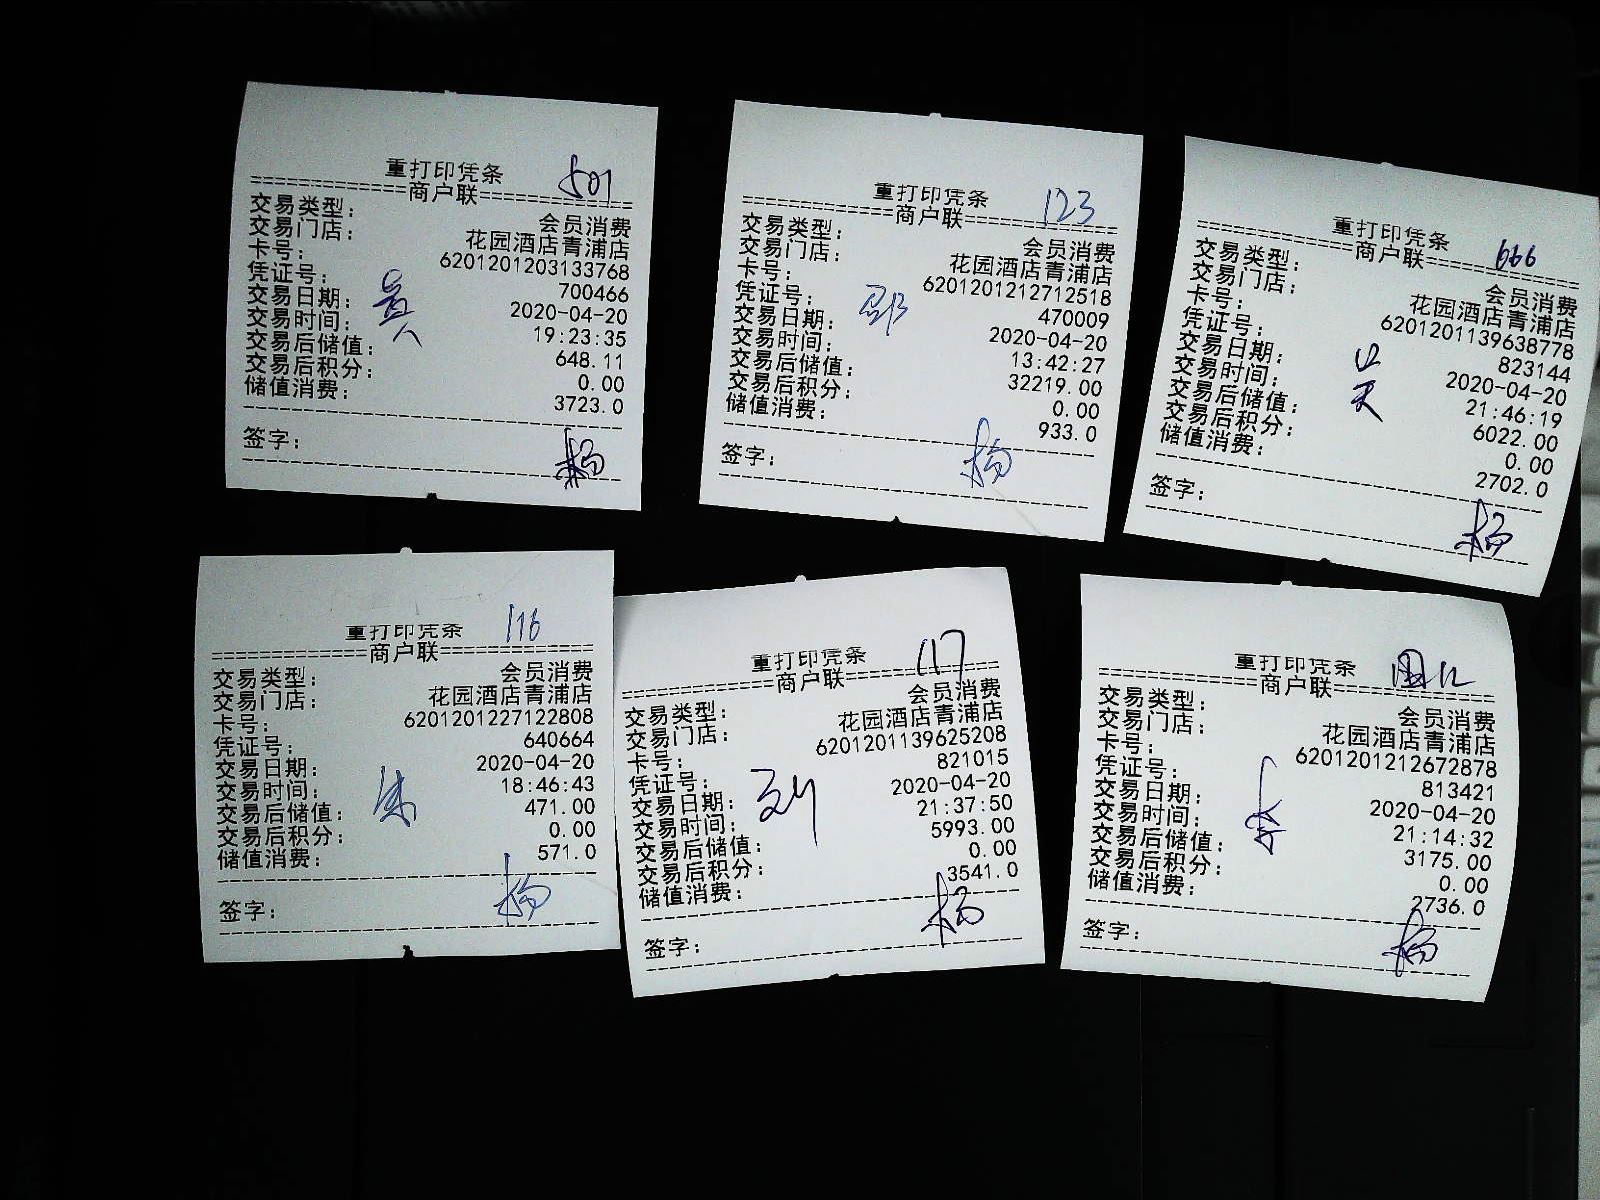 重打印凭条 501
==============商户联==============
交易类型： 会员消费
交易门店： 花园酒店青浦店
卡号： 6201201203133768
凭证号： 700466
交易日期： 2020-04-20
交易时间： 19:23:35
交易后储值： 648.11
交易后积分： 0.00
储值消费： 3723.0
签字： 杨
重打印凭条 123
==============商户联==============
交易类型： 会员消费
交易门店： 花园酒店青浦店
卡号： 6201201212712518
凭证号： 470009
交易日期： 2020-04-20
交易时间： 13:42:27
交易后储值： 32219.00
交易后积分： 0.00
储值消费： 933.0
邵
签字： 杨
重打印凭条 666
==============商户联==============
交易类型： 会员消费
交易门店： 花园酒店青浦店
卡号： 6201201139638778
凭证号： 823144
交易日期： 2020-04-20
交易时间： 21:46:19
交易后储值： 6022.00
交易后积分： 0.00
储值消费： 2702.0
签字： 杨
重打印凭条 116
==============商户联==============
交易类型： 会员消费
交易门店： 花园酒店青浦店
卡号： 6201201227122808
凭证号： 640664
交易日期： 2020-04-20
交易时间： 18:46:43
交易后储值： 471.00
交易后积分： 0.00
储值消费： 571.0
签字： 杨
重打印凭条 117
==============商户联==============
交易类型： 会员消费
交易门店： 花园酒店青浦店
卡号： 6201201139625208
凭证号： 821015
交易日期： 2020-04-20
交易时间： 21:37:50
交易后储值： 5993.00
交易后积分： 0.00
储值消费： 3541.0
刘
签字： 杨
重打印凭条
==============商户联==============
交易类型： 会员消费
交易门店： 花园酒店青浦店
卡号： 6201201212672878
凭证号： 813421
交易日期： 2020-04-20
交易时间： 21:14:32
交易后储值： 3175.00
交易后积分： 0.00
储值消费： 2736.0
签字： 杨